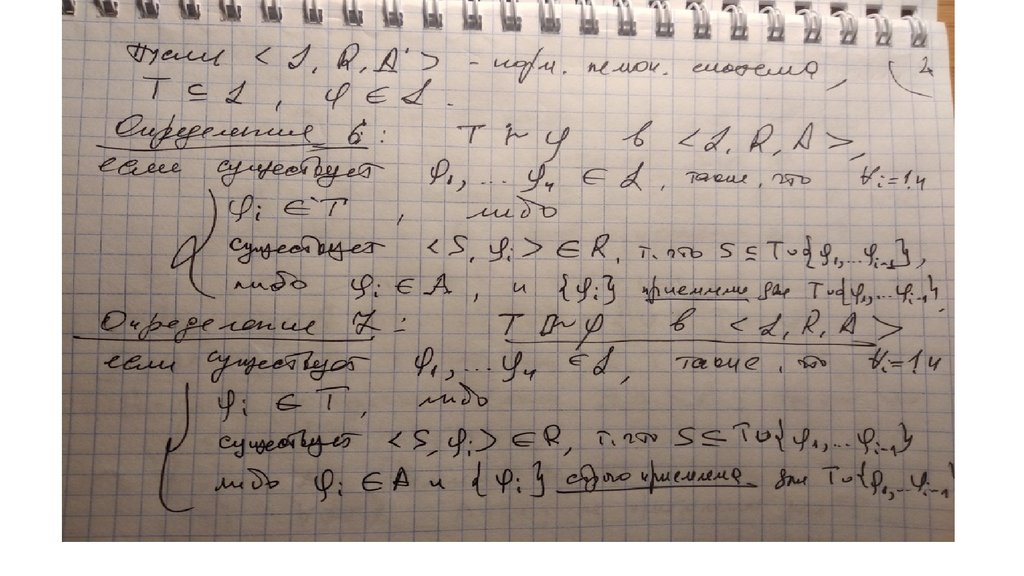 Пусть < L, R, A > - норм. немон. система, 2
T ⊆ L, φ ∈ L.
Определение 6: T |~ φ в < L, R, A >,
если существует φ₁, ... φₙ ∈ L, такие, что ∀i=1,n
φᵢ ∈ T, либо
существует < S, φᵢ > ∈ R, т. что S ⊆ T∪{φ₁,...φᵢ₋₁},
либо φᵢ ∈ A, и {φᵢ} приемлемо для T∪{φ₁,...φᵢ₋₁}
Определение 7: T φ в < L, R, A >
если существует φ₁, ... φₙ ∈ L, такие, что ∀i=1,n
φᵢ ∈ T, либо
существует < S, φᵢ > ∈ R, т. что S ⊆ T∪{φ₁,...φᵢ₋₁}
либо φᵢ ∈ A и {φᵢ} строго приемлема для T∪{φ₁,...φᵢ₋₁}